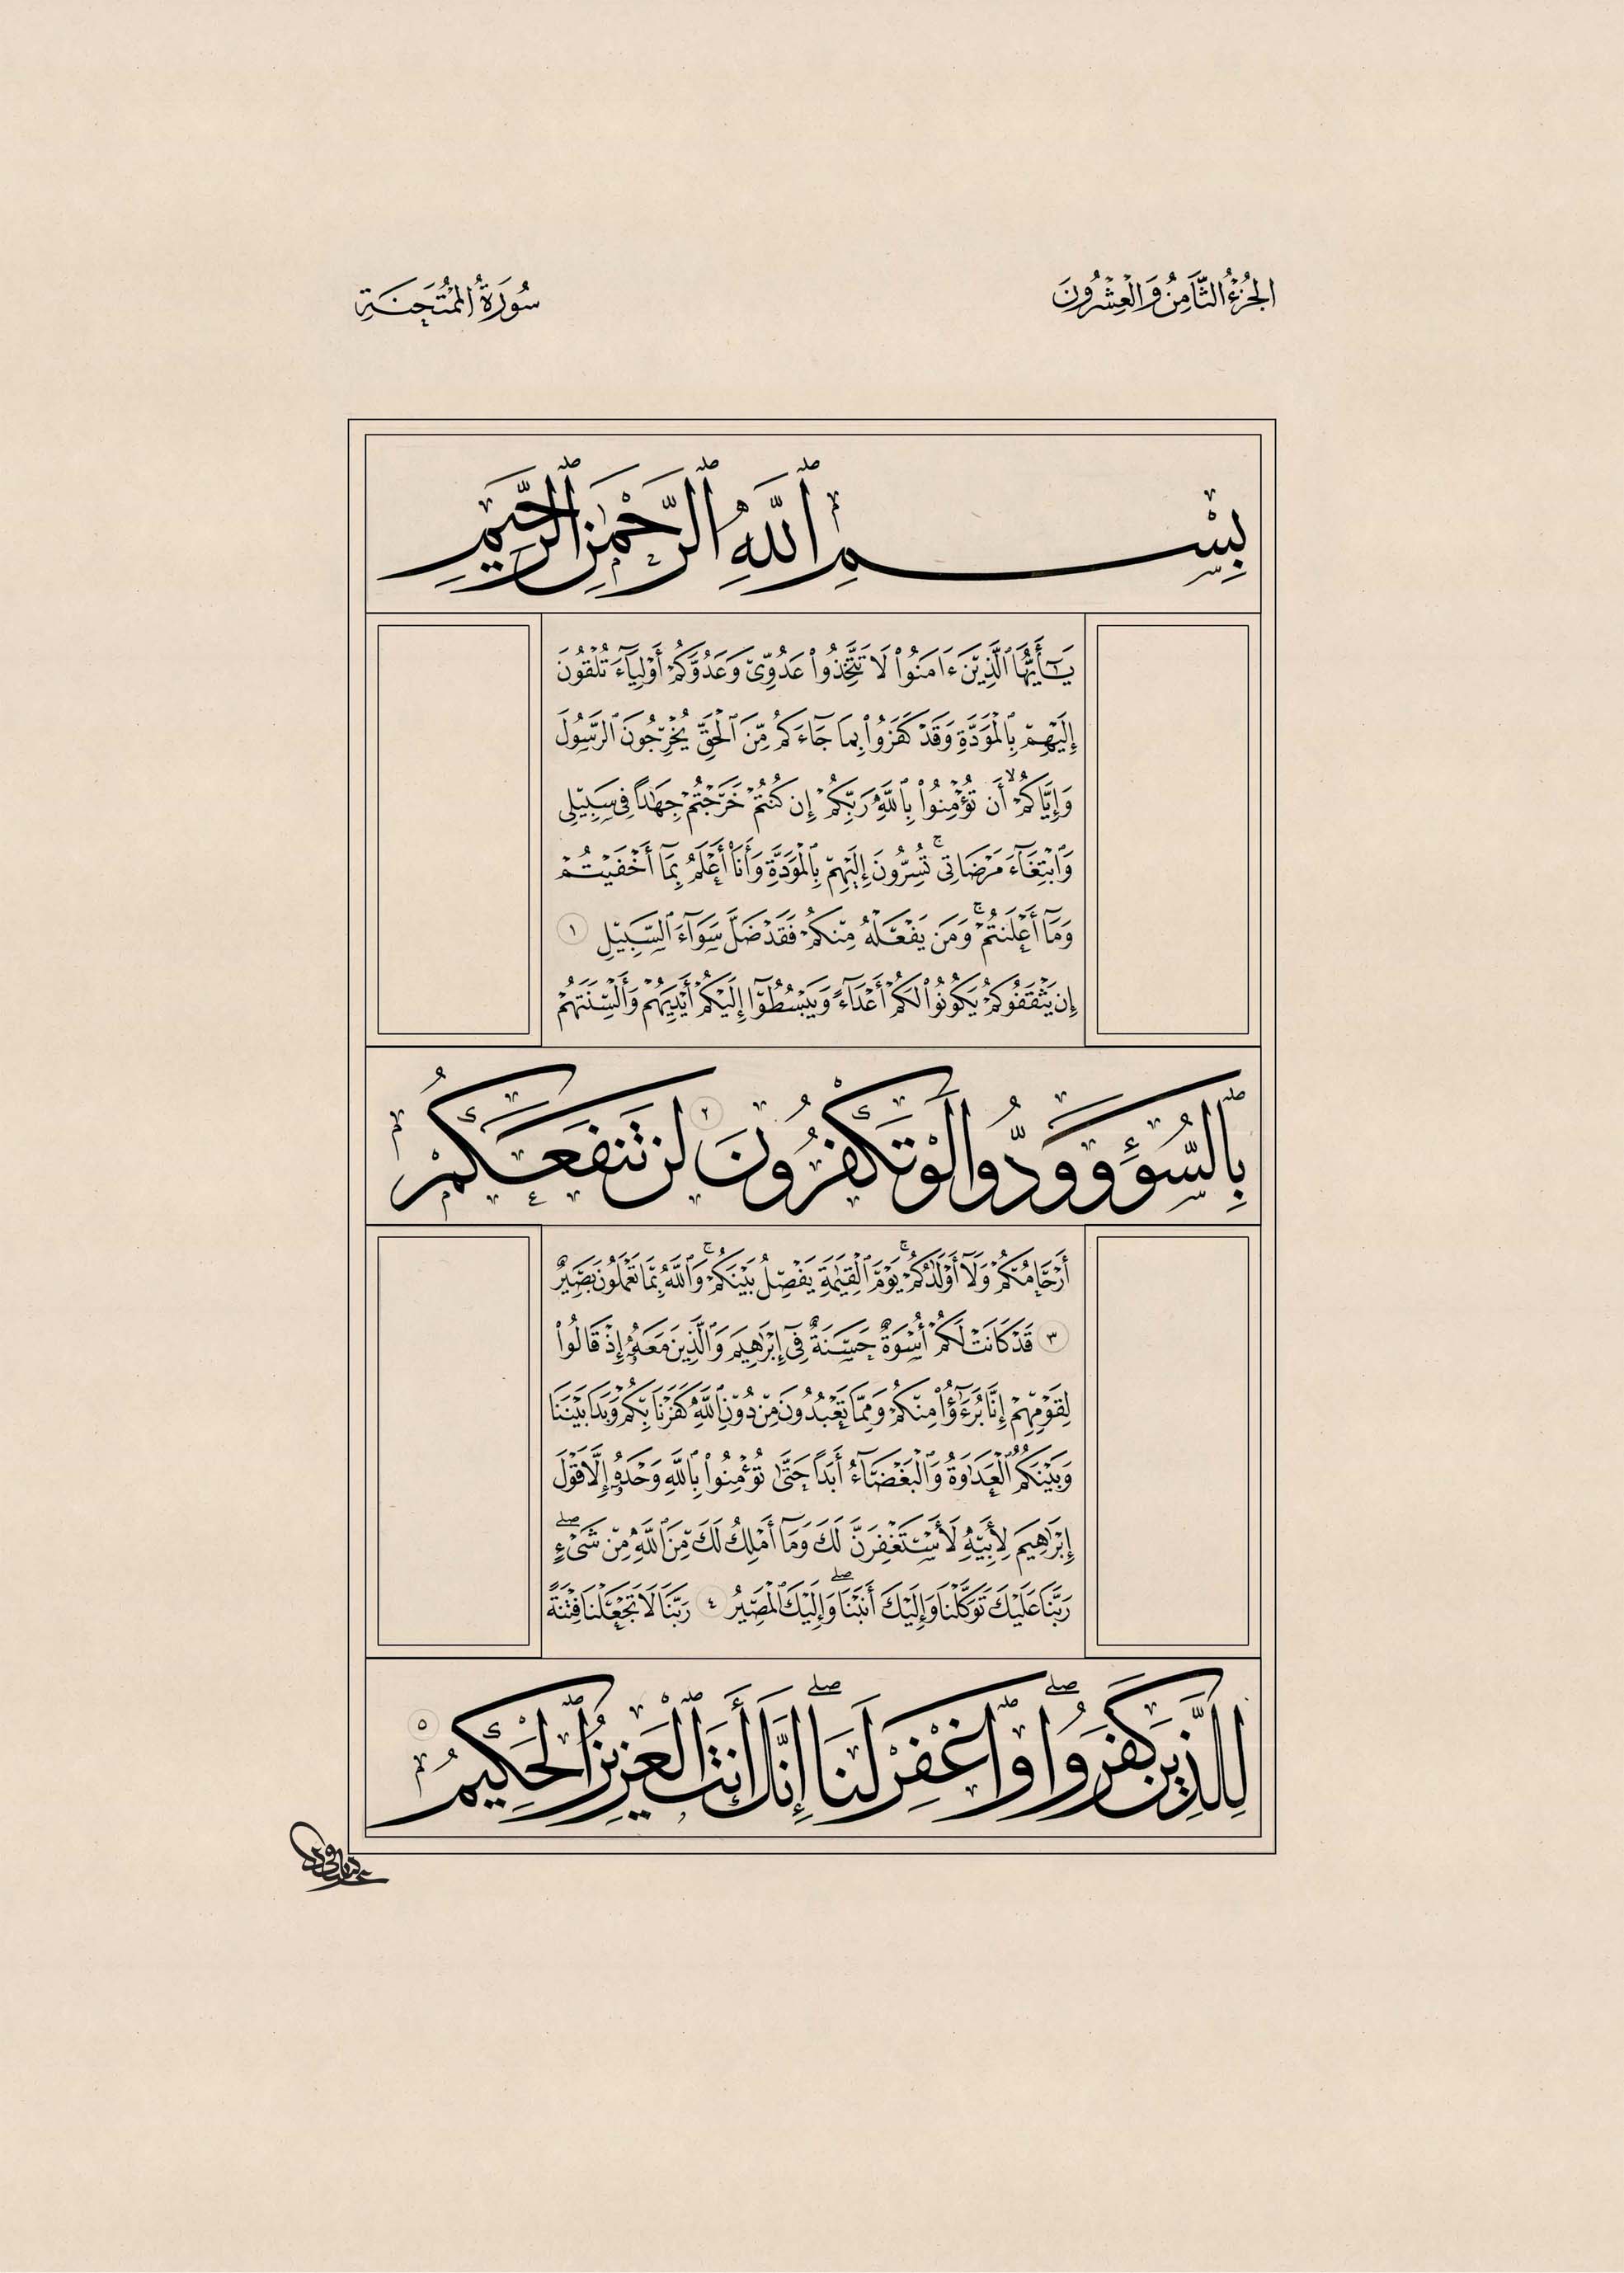 الجُزْءُ الثَّامِنُ وَالْعِشْرُونَ
سُورَةُ المُمْتَحَنَةِ
بِسْمِ ٱللَّهِ ٱلرَّحْمَٰنِ ٱلرَّحِيمِ
يَٰٓأَيُّهَا ٱلَّذِينَ ءَامَنُوا۟ لَا تَتَّخِذُوا۟ عَدُوِّى وَعَدُوَّكُمْ أَوْلِيَآءَ تُلْقُونَ
إِلَيْهِم بِٱلْمَوَدَّةِ وَقَدْ كَفَرُوا۟ بِمَا جَآءَكُم مِّنَ ٱلْحَقِّ يُخْرِجُونَ ٱلرَّسُولَ
وَإِيَّاكُمْ ۙ أَن تُؤْمِنُوا۟ بِٱللَّهِ رَبِّكُمْ إِن كُنتُمْ خَرَجْتُمْ جِهَٰدًا فِى سَبِيلِى
وَٱبْتِغَآءَ مَرْضَاتِى ۚ تُسِرُّونَ إِلَيْهِم بِٱلْمَوَدَّةِ وَأَنَا۠ أَعْلَمُ بِمَآ أَخْفَيْتُمْ
وَمَآ أَعْلَنتُمْ ۚ وَمَن يَفْعَلْهُ مِنكُمْ فَقَدْ ضَلَّ سَوَآءَ ٱلسَّبِيلِ ١
إِن يَثْقَفُوكُمْ يَكُونُوا۟ لَكُمْ أَعْدَآءً وَيَبْسُطُوٓا۟ إِلَيْكُمْ أَيْدِيَهُمْ وَأَلْسِنَتَهُم
بِٱلسُّوٓءِ وَوَدُّوا۟ لَوْ تَكْفُرُونَ ٢ لَن تَنفَعَكُمْ
أَرْحَامُكُمْ وَلَآ أَوْلَٰدُكُمْ ۚ يَوْمَ ٱلْقِيَٰمَةِ يَفْصِلُ بَيْنَكُمْ ۚ وَٱللَّهُ بِمَا تَعْمَلُونَ بَصِيرٌ
٣ قَدْ كَانَتْ لَكُمْ أُسْوَةٌ حَسَنَةٌ فِىٓ إِبْرَٰهِيمَ وَٱلَّذِينَ مَعَهُۥٓ إِذْ قَالُوا۟
لِقَوْمِهِمْ إِنَّا بُرَءَٰٓؤُا۟ مِنكُمْ وَمِمَّا تَعْبُدُونَ مِن دُونِ ٱللَّهِ كَفَرْنَا بِكُمْ وَبَدَا بَيْنَنَا
وَبَيْنَكُمُ ٱلْعَدَٰوَةُ وَٱلْبَغْضَآءُ أَبَدًا حَتَّىٰ تُؤْمِنُوا۟ بِٱللَّهِ وَحْدَهُۥٓ إِلَّا قَوْلَ
إِبْرَٰهِيمَ لِأَبِيهِ لَأَسْتَغْفِرَنَّ لَكَ وَمَآ أَمْلِكُ لَكَ مِنَ ٱللَّهِ مِن شَىْءٍ ۖ
رَّبَّنَا عَلَيْكَ تَوَكَّلْنَا وَإِلَيْكَ أَنَبْنَا ۖ وَإِلَيْكَ ٱلْمَصِيرُ ٤ رَبَّنَا لَا تَجْعَلْنَا فِتْنَةً
لِّلَّذِينَ كَفَرُوا۟ ۖ وَٱغْفِرْ لَنَا ۖ إِنَّكَ أَنتَ ٱلْعَزِيزُ ٱلْحَكِيمُ ٥